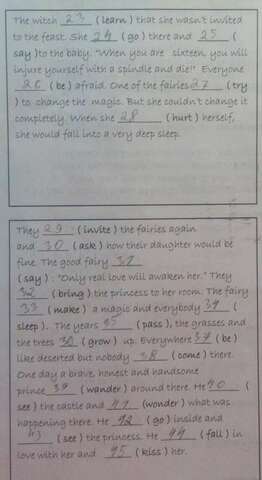 The witch 23 ( learn ) that she wasn't invited
to the feast. She 24 ( go ) there and 25 (
say )to the baby: "When you are sixteen, you will
injure yourself with a spindle and die!" Everyone
26 ( be ) afraid. One of the fairies 27 ( try
) to change the magic. But she couldn't change it
completely. When she 28 ( hurt ) herself,
she would fall into a very deep sleep.
They 29 ( invite ) the fairies again
and 30 ( ask ) how their daughter would be
fine. The good fairy 31
( say ) : "Only real love will awaken her." They
32 ( bring ) the princess to her room. The fairy
33 ( make ) a magic and everybody 34 (
sleep ). The years 35 ( pass ), the grasses and
the trees 36 ( grow ) up. Everywhere 37 ( be )
like deserted but nobody 38 ( come ) there.
One day a brave, honest and handsome
prince 39 ( wander ) around there. He 40 (
see ) the castle and 41 (wonder ) what was
happening there. He 42 ( go ) inside and
43 ( see ) the princess. He 44 ( fall ) in
love with her and 45 ( kiss ) her.